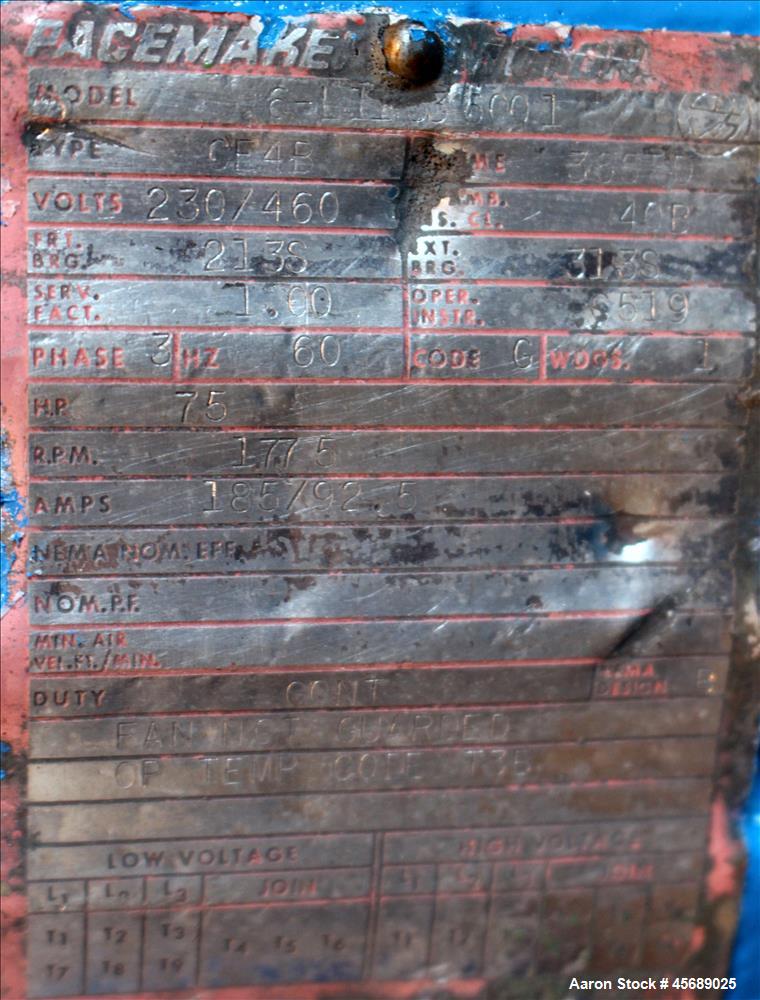 PACEMAKER MOTOR
MODEL
TYPE CE4B
VOLTS 230/460 AMB. INS. CL. 40B
FRT. BRG. 213S EXT. BRG. 313S
SERV. FACT. 1.00 OPER. INSTR. 6519
PHASE 3 HZ 60 CODE G WDGS. 1
H.P. 75
R.P.M. 1775
AMPS 185/92.5
NEMA NOM. EFF.
NOM. P.F.
MIN. AIR
VEL. FT./MIN.
DUTY CONT NEMA DESIGN B
FAN NOT GUARDED
OP TEMP CODE T3B
LOW VOLTAGE HIGH VOLTAGE
L1 L2 L3 JOIN L1 L2 L3 JOIN
T1 T2 T3 T4 T5 T6 T1 T2
T7 T8 T9
Aaron Stock # 45689025